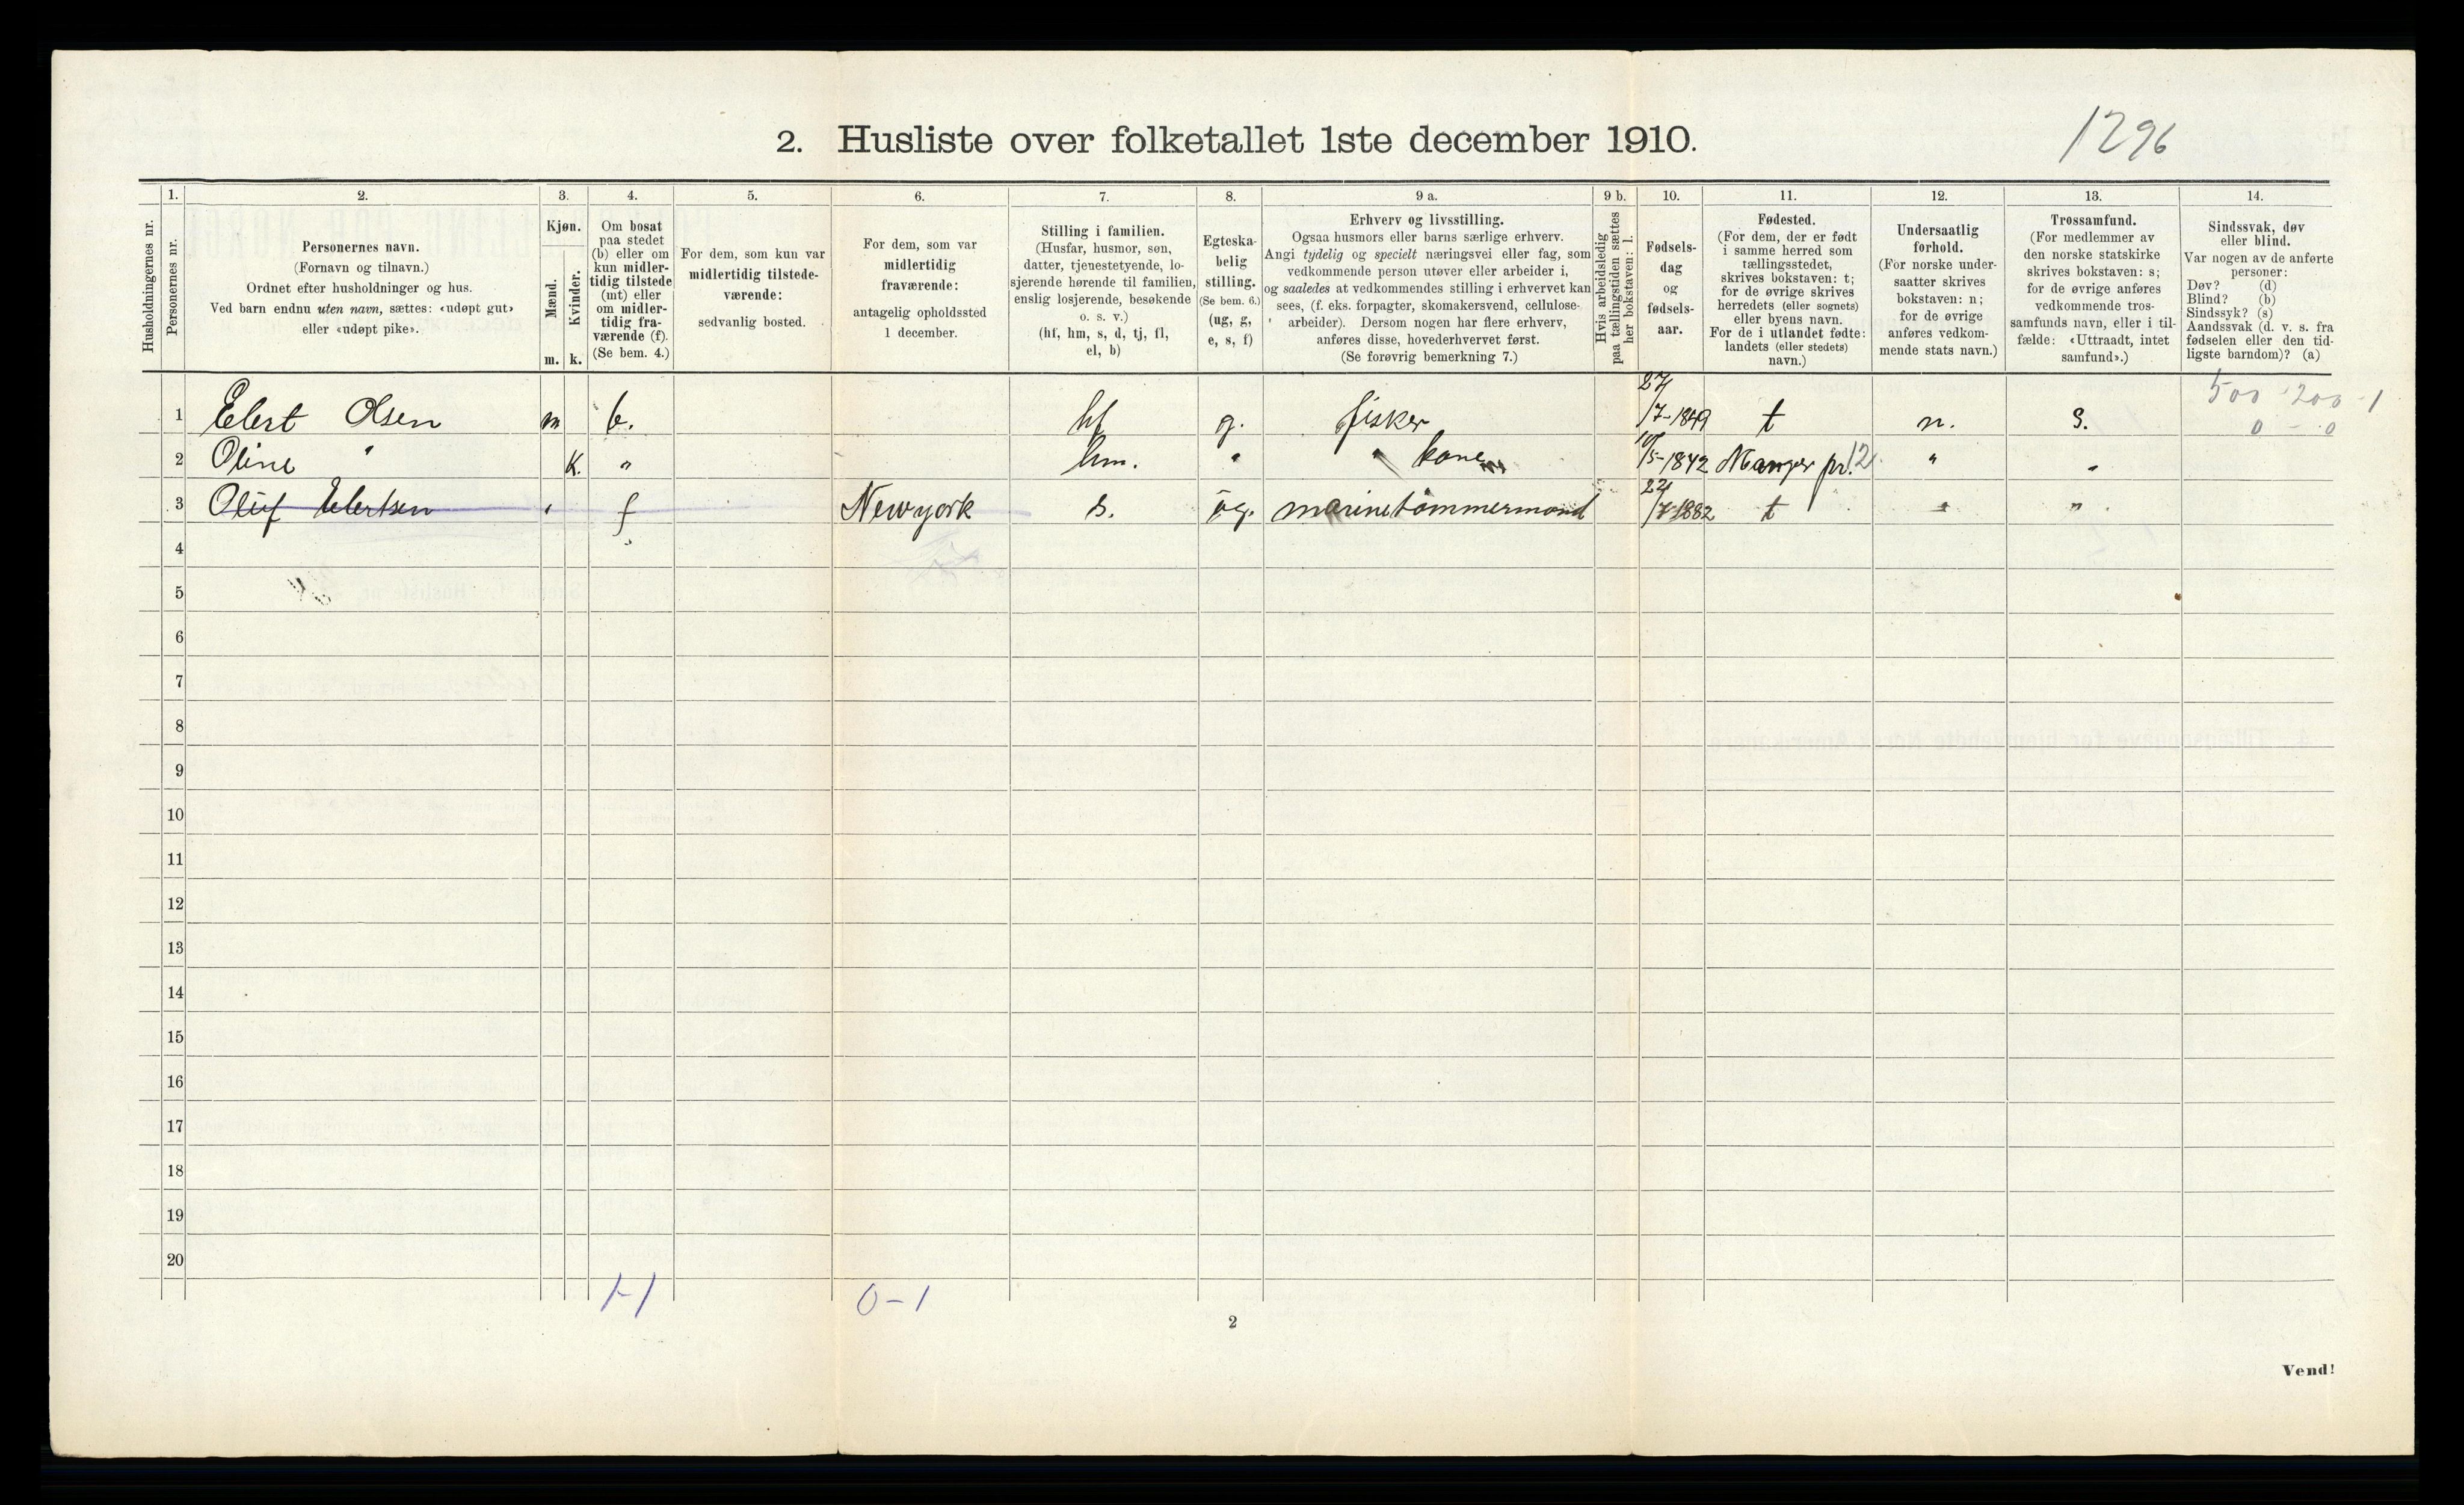 1296
2. Husliste over folketallet 1ste december 1910.
Husholdningernes nr.
1.
Personernes nr.
2.
Personernes navn.
(Fornavn og tilnavn.)
Ordnet efter husholdninger og hus.
Ved barn endnu uten navn, sættes: «udøpt gut»
eller «udøpt pike».
3.
Kjøn.
Mænd.
m.
Kvinder.
k.
4.
Om bosat
paa stedet
(b) eller om
kun midler-
tidig tilstede
(mt) eller
om midler-
tidig fra-
værende (f).
(Se bem. 4.)
5.
For dem, som kun var
midlertidig tilstede-
værende:
sedvanlig bosted.
6.
For dem, som var
midlertidig
fraværende:
antagelig opholdssted
1 december.
7.
Stilling i familien.
(Husfar, husmor, søn,
datter, tjenestetyende, lo-
sjerende hørende til familien,
enslig losjerende, besøkende
o. s. v.)
(hf, hm, s, d, tj, fl,
el, b)
8.
Egteska-
belig
stilling.
(Se bem. 6.)
(ug, g,
e, s, f)
9 a.
Erhverv og livsstilling.
Ogsaa husmors eller barns særlige erhverv.
Angi tydelig og specielt næringsvei eller fag, som
vedkommende person utøver eller arbeider i,
og saaledes at vedkommendes stilling i erhvervet kan
sees, (f. eks. forpagter, skomakersvend, cellulose-
arbeider). Dersom nogen har flere erhverv,
anføres disse, hovederhvervet først.
(Se forøvrig bemerkning 7.)
9 b.
Hvis arbeidsledig
paa tællingstiden sættes
her bokstaven: l.
10.
Fødsels-
dag
og
fødsels-
aar.
11.
Fødested.
(For dem, der er født
i samme herred som
tællingsstedet,
skrives bokstaven: t;
for de øvrige skrives
herredets (eller sognets)
eller byens navn.
For de i utlandet fødte:
landets (eller stedets)
navn.)
12.
Undersaatlig
forhold.
(For norske under-
saatter skrives
bokstaven: n;
for de øvrige
anføres vedkom-
mende stats navn.)
13.
Trossamfund.
(For medlemmer av
den norske statskirke
skrives bokstaven: s;
for de øvrige anføres
vedkommende tros-
samfunds navn, eller i til-
fælde: «Uttraadt, intet
samfund».)
14.
Sindssvak, døv
eller blind.
Var nogen av de anførte
personer:
Døv? (d)
Blind? (b)
Sindssyk? (s)
Aandssvak (d. v. s. fra
fødselen eller den tid-
ligste barndom)? (a)
500 200-1
0 - 0
1 Elert Olsen m b. hf g. fisker 27/7-1849 t n. S.
2 Oline " K. " hm. " " kone 10/5-1842 Manger pr. 12 " "
3 Oluf Elertsen " f Newyork s. ug. marinetømmermand 22/7-1882 t " "
4
5
6
7
8
9
10
11
12
13
14
15
16
17
18
19
20
1-1 0-1
2
Vend!